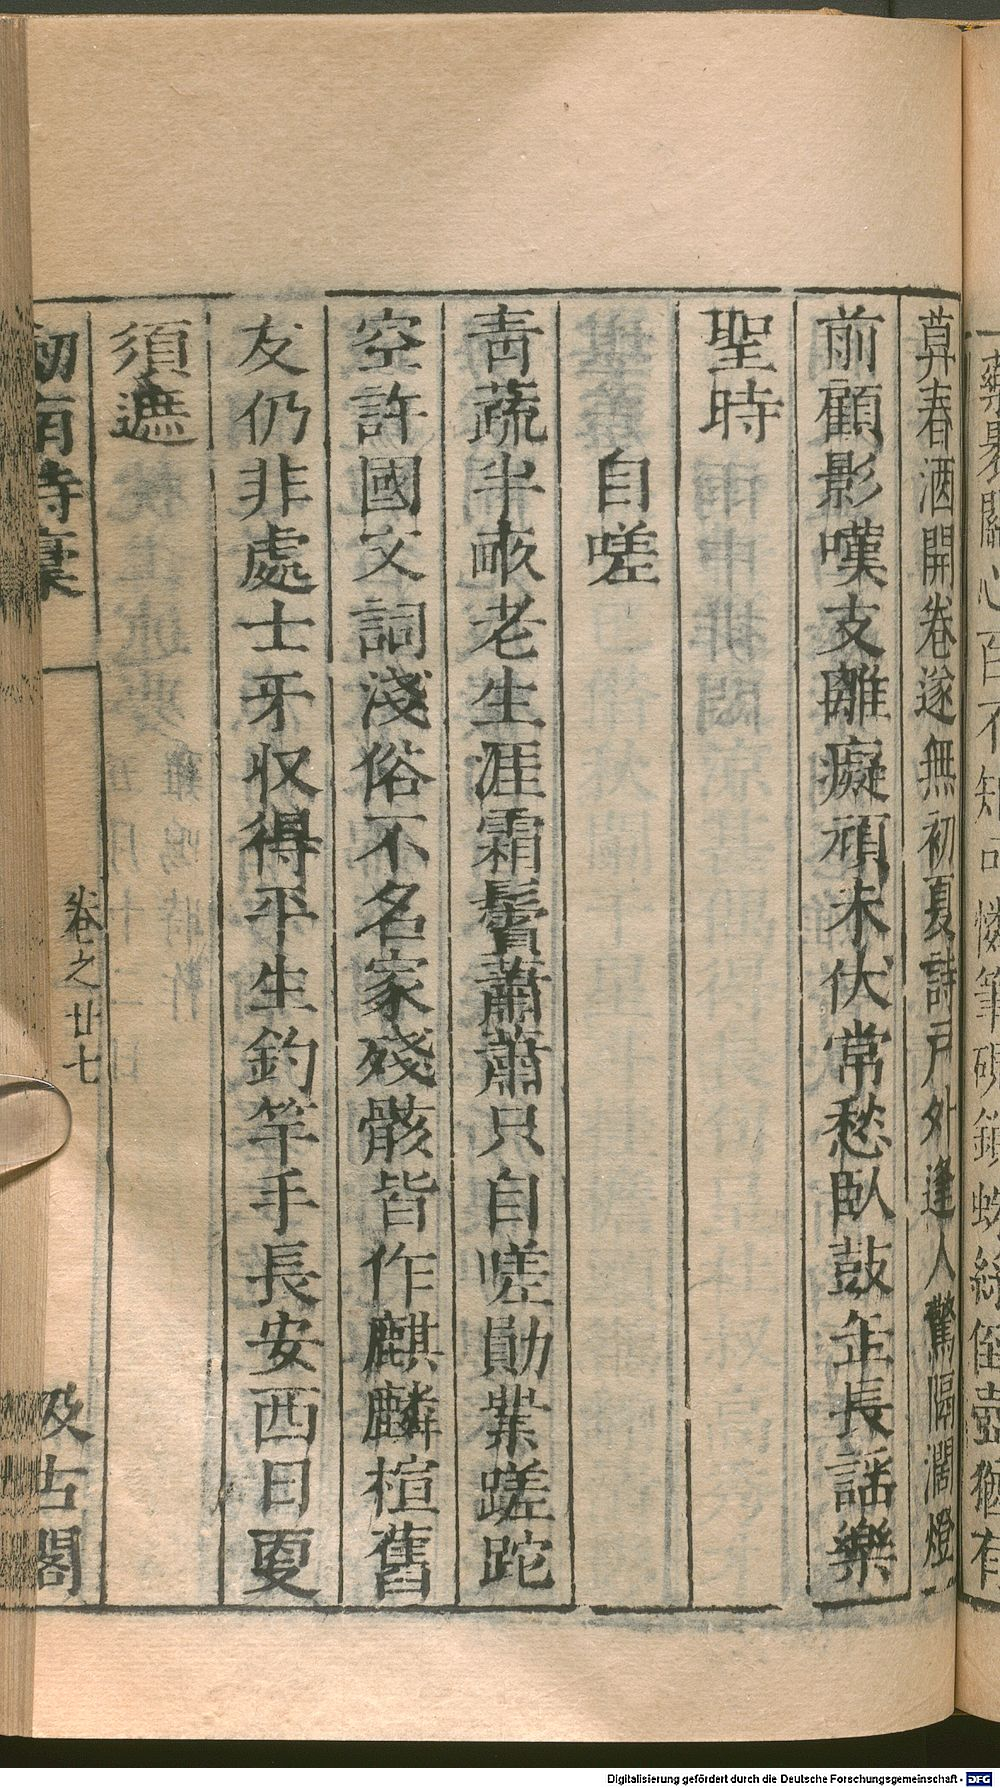 藥裹關心百不知可憐筆硯鎖蛛絲倒壺猶有
莫春酒開卷遂無初夏詩戶外逢人驚隔濶燈
前顧影嘆支離癡頑未伏常愁臥鼓缶長謡樂
聖時
自嗟
靑蔬半畝老生涯霜鬢蕭蕭只自嗟勛業蹉跎
空許國文詞淺俗不名家殘骸皆作麒麟楦舊
友仍非處士牙収得平生釣竿手長安西日更
須遮
劒南詩稾
卷之廿七
汲古閣
Digitalisierung gefördert durch die Deutsche Forschungsgemeinschaft - DFG